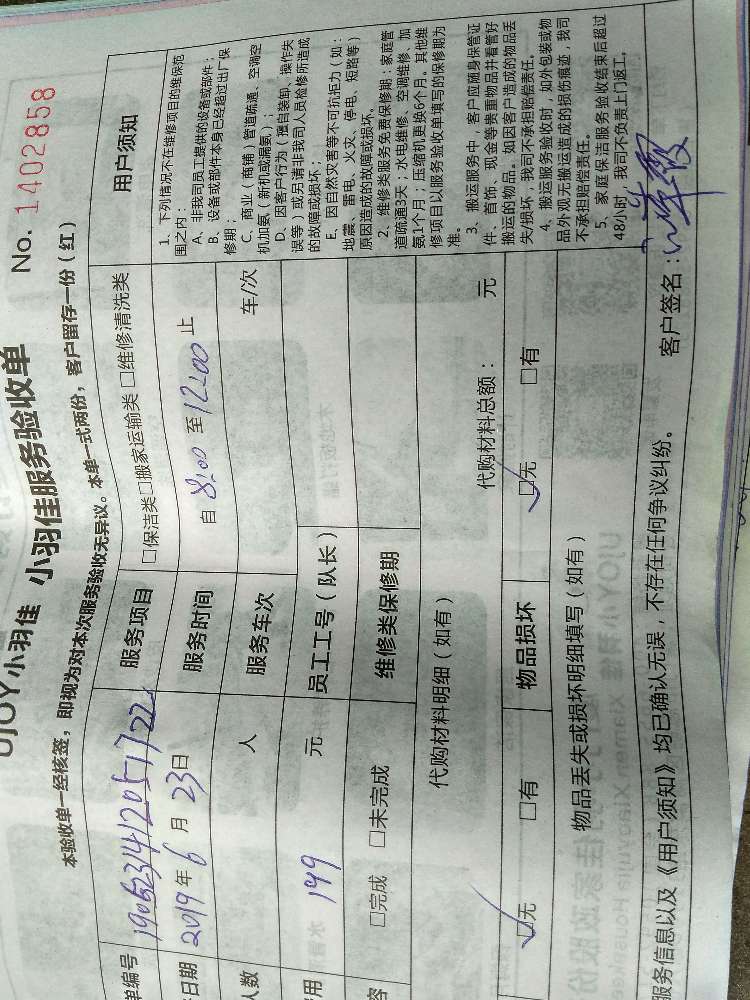 UJOY小羽佳 小羽佳服务验收单 No. 1402858
本验收单一经核签，即视为对本次服务验收无异议。本单一式两份，客户留存一份（红）
单编号 服务项目 □保洁类□搬家运输类 □维修清洗类 用户须知
日期 2019年6月23日 服务时间 自 8:00 至 12:00 止
人数 人 服务车次 车/次
用 149 元 员工工号（队长）
容 □完成 □未完成 维修类保修期
代购材料明细（如有） 代购材料总额： 元
□无 □有 物品损坏 □无 □有
物品丢失或损坏明细填写（如有）
1、下列情况不在维修项目的维保范
围之内：
A、非我司员工提供的设备或部件；
B、设备或部件本身已经超过出厂保
修期；
C、商业（商铺）管道疏通、空调空
机加氨（新机或漏氨）；
D、因客户行为（擅自装卸、操作失
误等）或另请非我司人员检修所造成
的故障或损坏；
E、因自然灾害等不可抗拒力（如：
地震、雷电、火灾、停电、短路等）
原因造成的故障或损坏。
2、维修类服务免费保修期：家庭管
道疏通3天；水电维修、空调维修、加
氨1个月；压缩机更换6个月。其他维
修项目以服务验收单填写的保修期为
准。
3、搬运服务中，客户应随身保管证
件、首饰、现金等贵重物品并看管好
搬运的物品。如因客户造成的物品丢
失/损坏，我司不承担赔偿责任。
4、搬运服务验收时，如外包装或物
品外观无搬运造成的损伤痕迹，我司
不承担赔偿责任。
5、家庭保洁服务验收结束后超过
48小时，我司不负责上门返工。
服务信息以及《用户须知》均已确认无误，不存在任何争议纠纷。 客户签名：